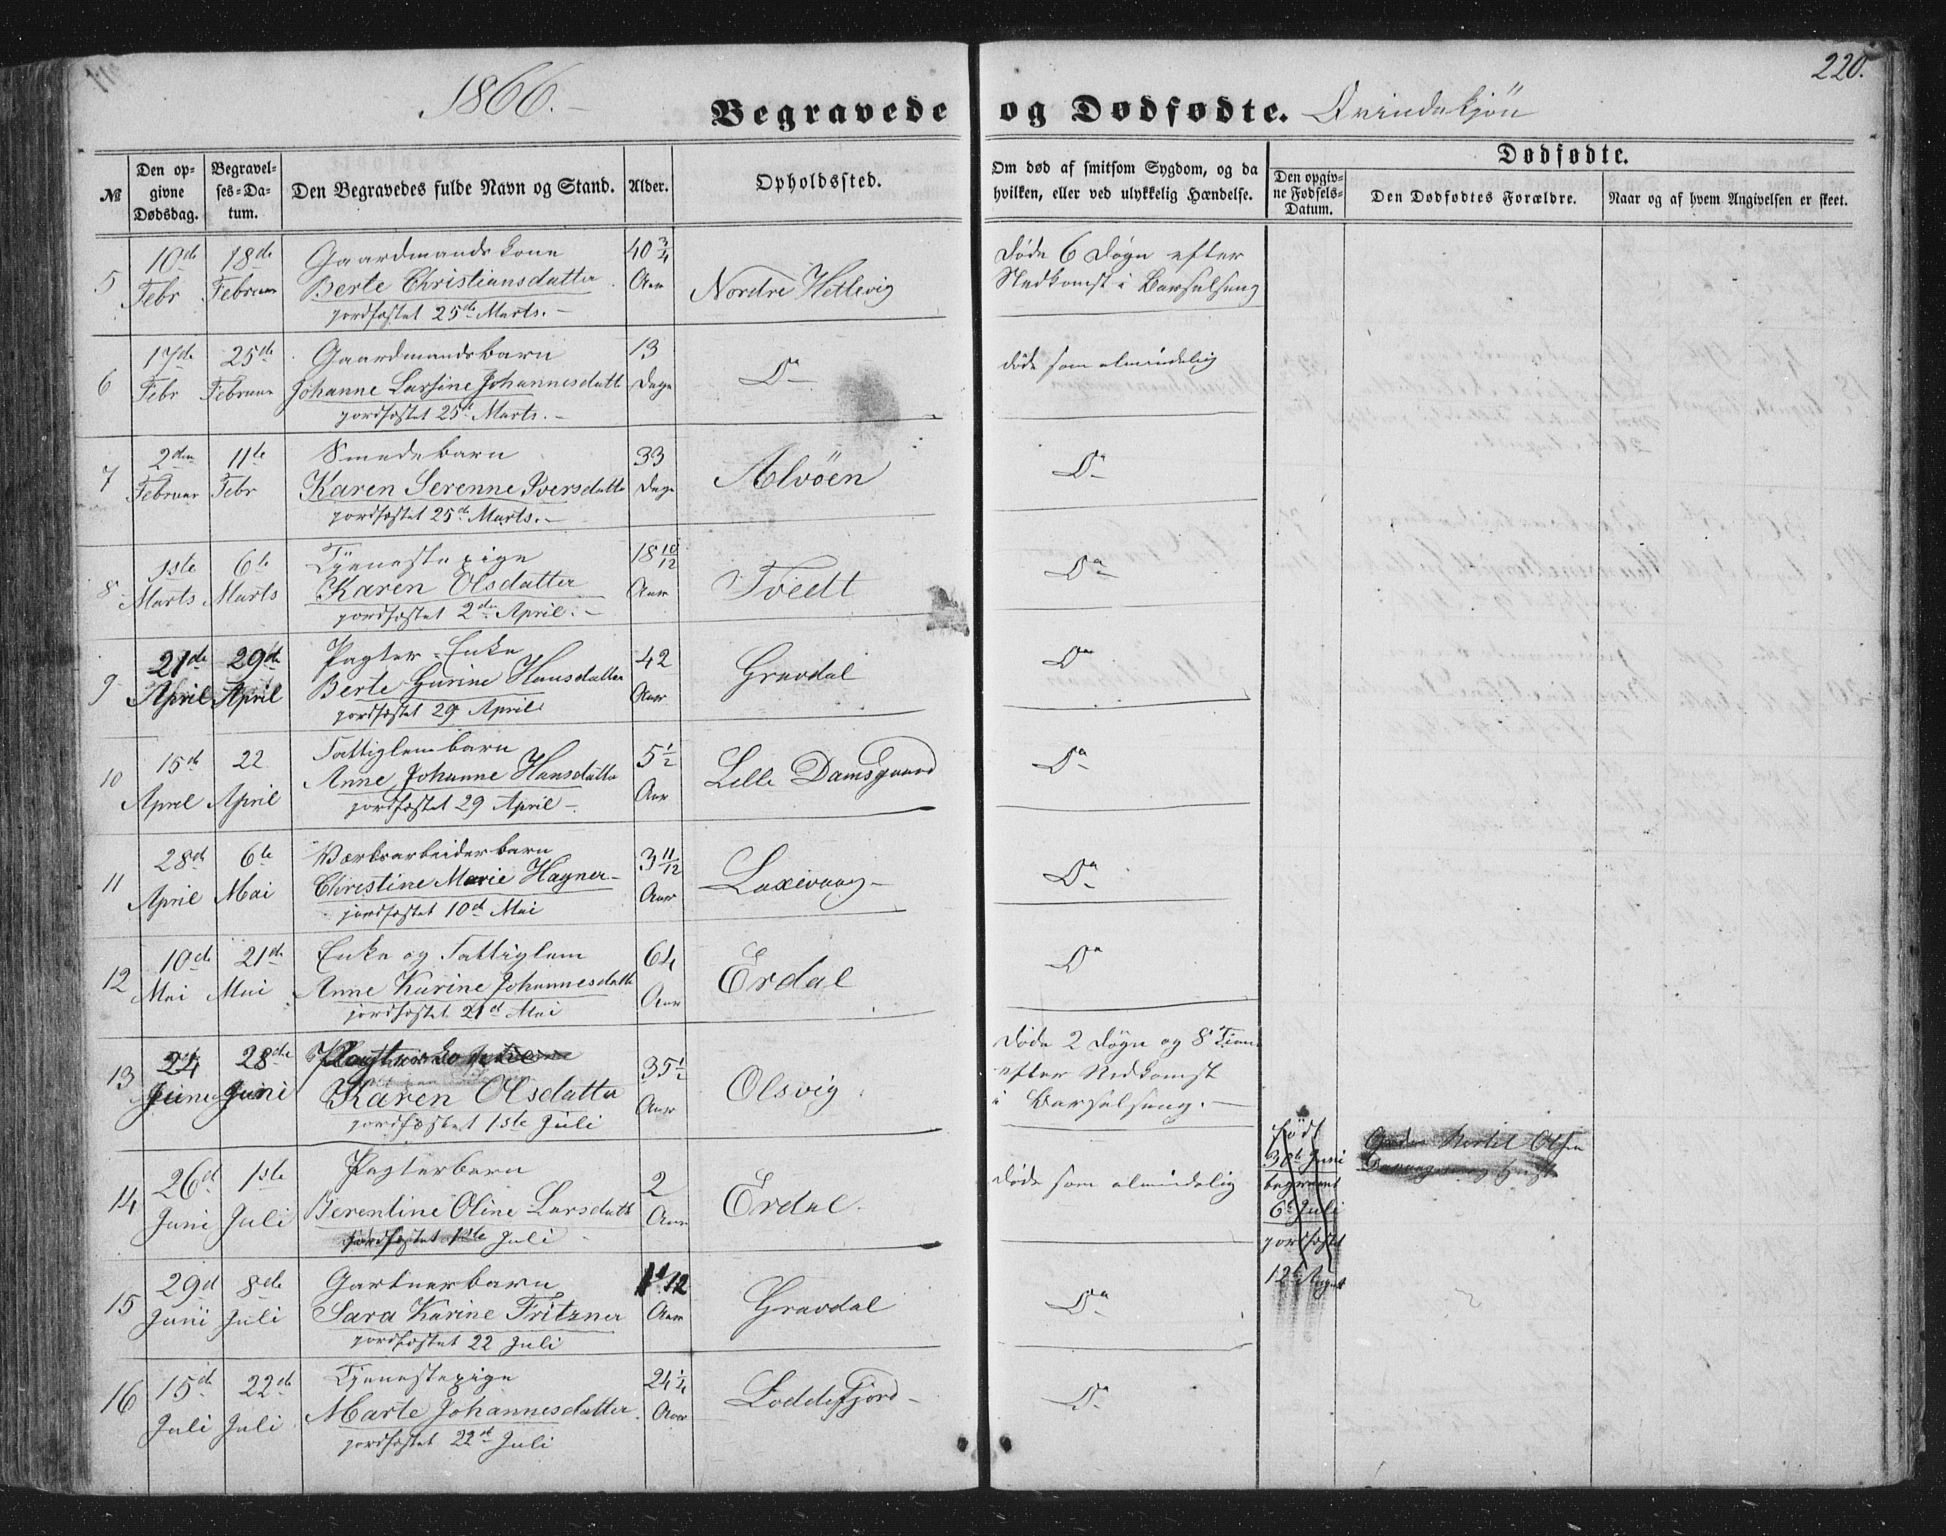 1866.
220.
Begravede og Dødfødte. Qvindekjøn
№
Den opgivne Dødsdag.
Begravelses-Datum.
Den Begravedes fulde Navn og Stand.
Alder.
Opholdssted.
Om død af smitsom Sygdom, og da hvilken, eller ved ulykkelig Hændelse.
Dødfødte.
Den opgivne Fødsels-Datum.
Den Dødfødtes Forældre.
Naar og af hvem Angivelsen er skeet.
5 10de Febr 18de Februar Gaardmandskone 40 3/4 Aar Nordre Hetlevig Døde 6 Døgn efter
Berte Christiansdatter Nedkomst i Barselseng
jordfæstet 25de Marts.-
6 17de Febr 25de Februar Gaardmandsbarn 13 Dage Do døde som almindelig
Johanne Larsine Johannesdatt
jordfæstet 25de Marts.-
7 2den Februar 11te Febr Smedebarn 33 Dage Alvøen Do
Karen Serenne Iversdatte
jordfæstet 25de Marts.-
8 1ste Marts 6te Marts Tjenestepige 18 10/12 Aar Tvedt Do
Karen Olsdatter
jordfæstet 2den April.-
9 21de April 29de April Pagter-Enke 42 Aar Gravdal Do
Berte Gurine Hansdatter
jordfæstet 29 April
10 15de April 22 April Fattiglem barn 5 1/2 Aar Lille Damsgaard Do
Anne Johanne Hansdatte
jordfæstet 29 April-
11 28de April 6te Mai Værksarbeiderbarn 3 11/12 Aar Laxevaag- Do
Christine Marie Hagner-
jordfæstet 10de Mai
12 10de Mai 21de Mai Enke og Fattiglem 64 Aar Erdal Do
Anne Karine Johannesdatt
jordfæstet 21de Mai
13 24 Juni 28de Juni 35 1/2 Aar Olsvig Døde 2 Døgn og 8 Time
Karen Olsdatter efter Nedkomst
jordfæstet 1ste Juli i Barselseng.-
14 26de Juni 1ste Juli Pagterbarn 2 Aar Erdal døde som almindelig
Berentine Oline Larsdatt
jordfæstet 1ste Juli
født
30te Juni
begravet
6te Juli
jordfæstet
12te August
Kertel Olsen
15 29d Juni 8de Juli Gartnerbarn Aar Gravdal Do
Sara Karine Fritzner
jordfæstet 22 Juli
16 15de Juli 22de Juli Tjenestepige 24 1/4 Aar Loddefjord- Do
Marte Johannesdatter.
jordfæstet 22de Juli